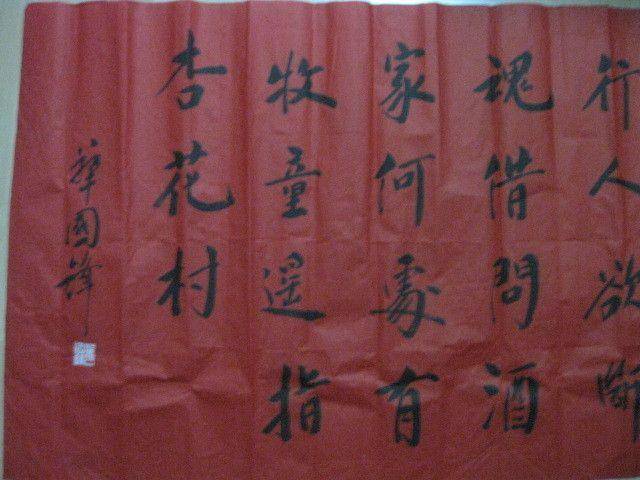 行人欲斷
魂借問酒
家何處有
牧童遥指
杏花村
華國鋒